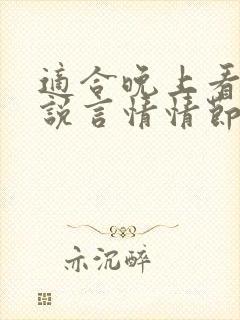 適合晚上看
說言情情節
示沉醉